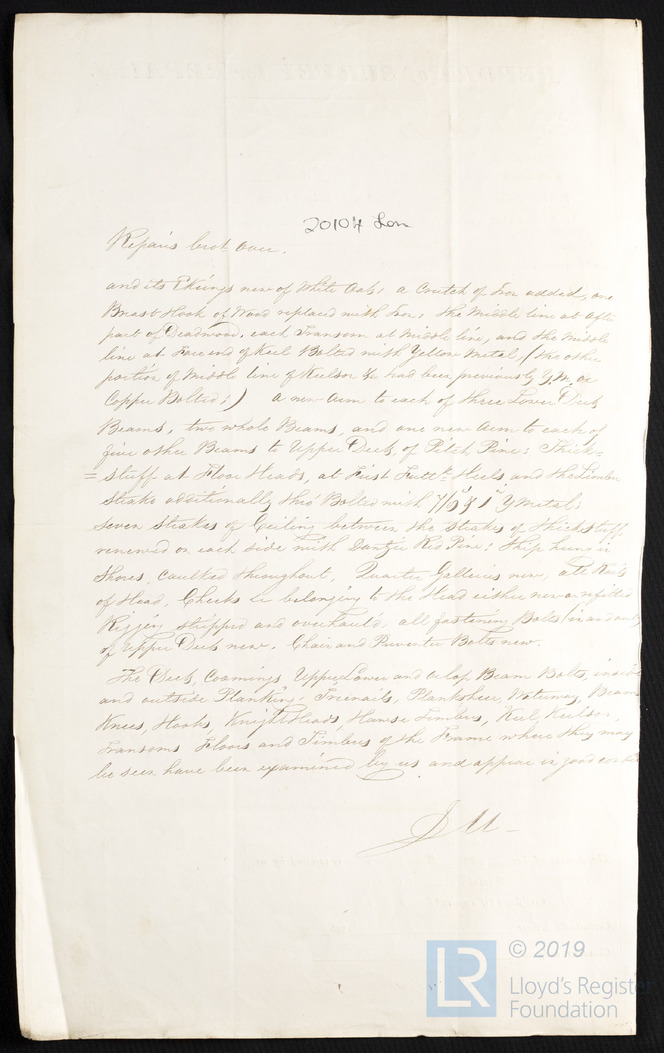 20104 Lon
Repairs brot over.
and its Ekeings new of White Oak; a Crutch of Iron added, one
Breast Hook of Wood replaced with Iron; the Middle line at after
part of Deadwood, each Transom at Middle line, and the Middle
line at Fore end of Keel Bolted with Yellow Metal, (the other
portion of Middle line of Keelson &c had been previously Y.M. or
Copper Bolted;) a new arm to each of three Lower Deck
Beams, two whole Beams, and one new arm to each of
five other Beams to Upper Deck, of Pitch Pine; Thick=
=stuff at Floor Heads, at First Futtk Heels and the Limber
Strake additionally thro' Bolted with 7/8 & 1" Y Metal;
Seven Strakes of Ceiling between the Strakes of Thickstuff,
renewed on each side with Dantzic Red Pine; Ship hung in
Shores, Caulked throughout, Quarter Galleries new, all Rails
of Head, Cheeks &c belonging to the Head either new or refitted
Rigging stripped and overhauled, all fastening Bolts (in and out)
of Upper Deck new. Chain and Preventer Bolts new.
The Deck, Coamings Upper Lower and Orlop Beam Bolts, inside
and outside Planking, Treenails, Plankshear, Waterway, Beams
Knees, Hooks, Knightsheads, Hawse Timbers, Keel, Keelson,
Transoms Floors and Timbers of the Frame where they may
be seen have been examined by us and appear in good
© 2019
LR
Lloyd's Register
Foundation